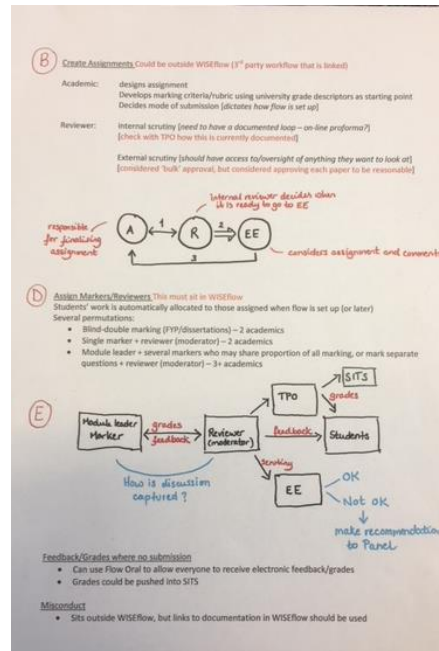 B Create Assignments Could be outside WISEflow (3rd party workflow that is linked)
Academic: designs assignment
Develops marking criteria/rubric using university grade descriptors as starting point
Decides mode of submission [dictates how flow is set up]
Reviewer: Internal scrutiny [need to have a documented loop – on-line proforma?]
[check with TPO how this is currently documented]
External scrutiny [should have access to/oversight of anything they want to look at]
[considered 'bulk' approval, but considered approving each paper to be reasonable]
internal reviewer decides when
it is ready to go to EE
responsible
for finalising
assignment
A 1 R 2 EE
3
considers assignment and comments
D Assign Markers/Reviewers This must sit in WISEflow
Students' work is automatically allocated to those assigned when flow is set up (or later)
Several permutations:
• Blind-double marking (FYP/dissertations) – 2 academics
• Single marker + reviewer (moderator) – 2 academics
• Module leader + several markers who may share proportion of all marking, or mark separate
questions + reviewer (moderator) – 3+ academics
E
SITS
TPO
grades
Module leader
Marker
grades
feedback
Reviewer
(moderator)
feedback
Students
scrutiny
EE
OK
Not OK
make recommendation
to Panel
How is discussion
captured?
Feedback/Grades where no submission
• Can use Flow Oral to allow everyone to receive electronic feedback/grades
• Grades could be pushed into SITS
Misconduct
• Sits outside WISEflow, but links to documentation in WISEflow should be used